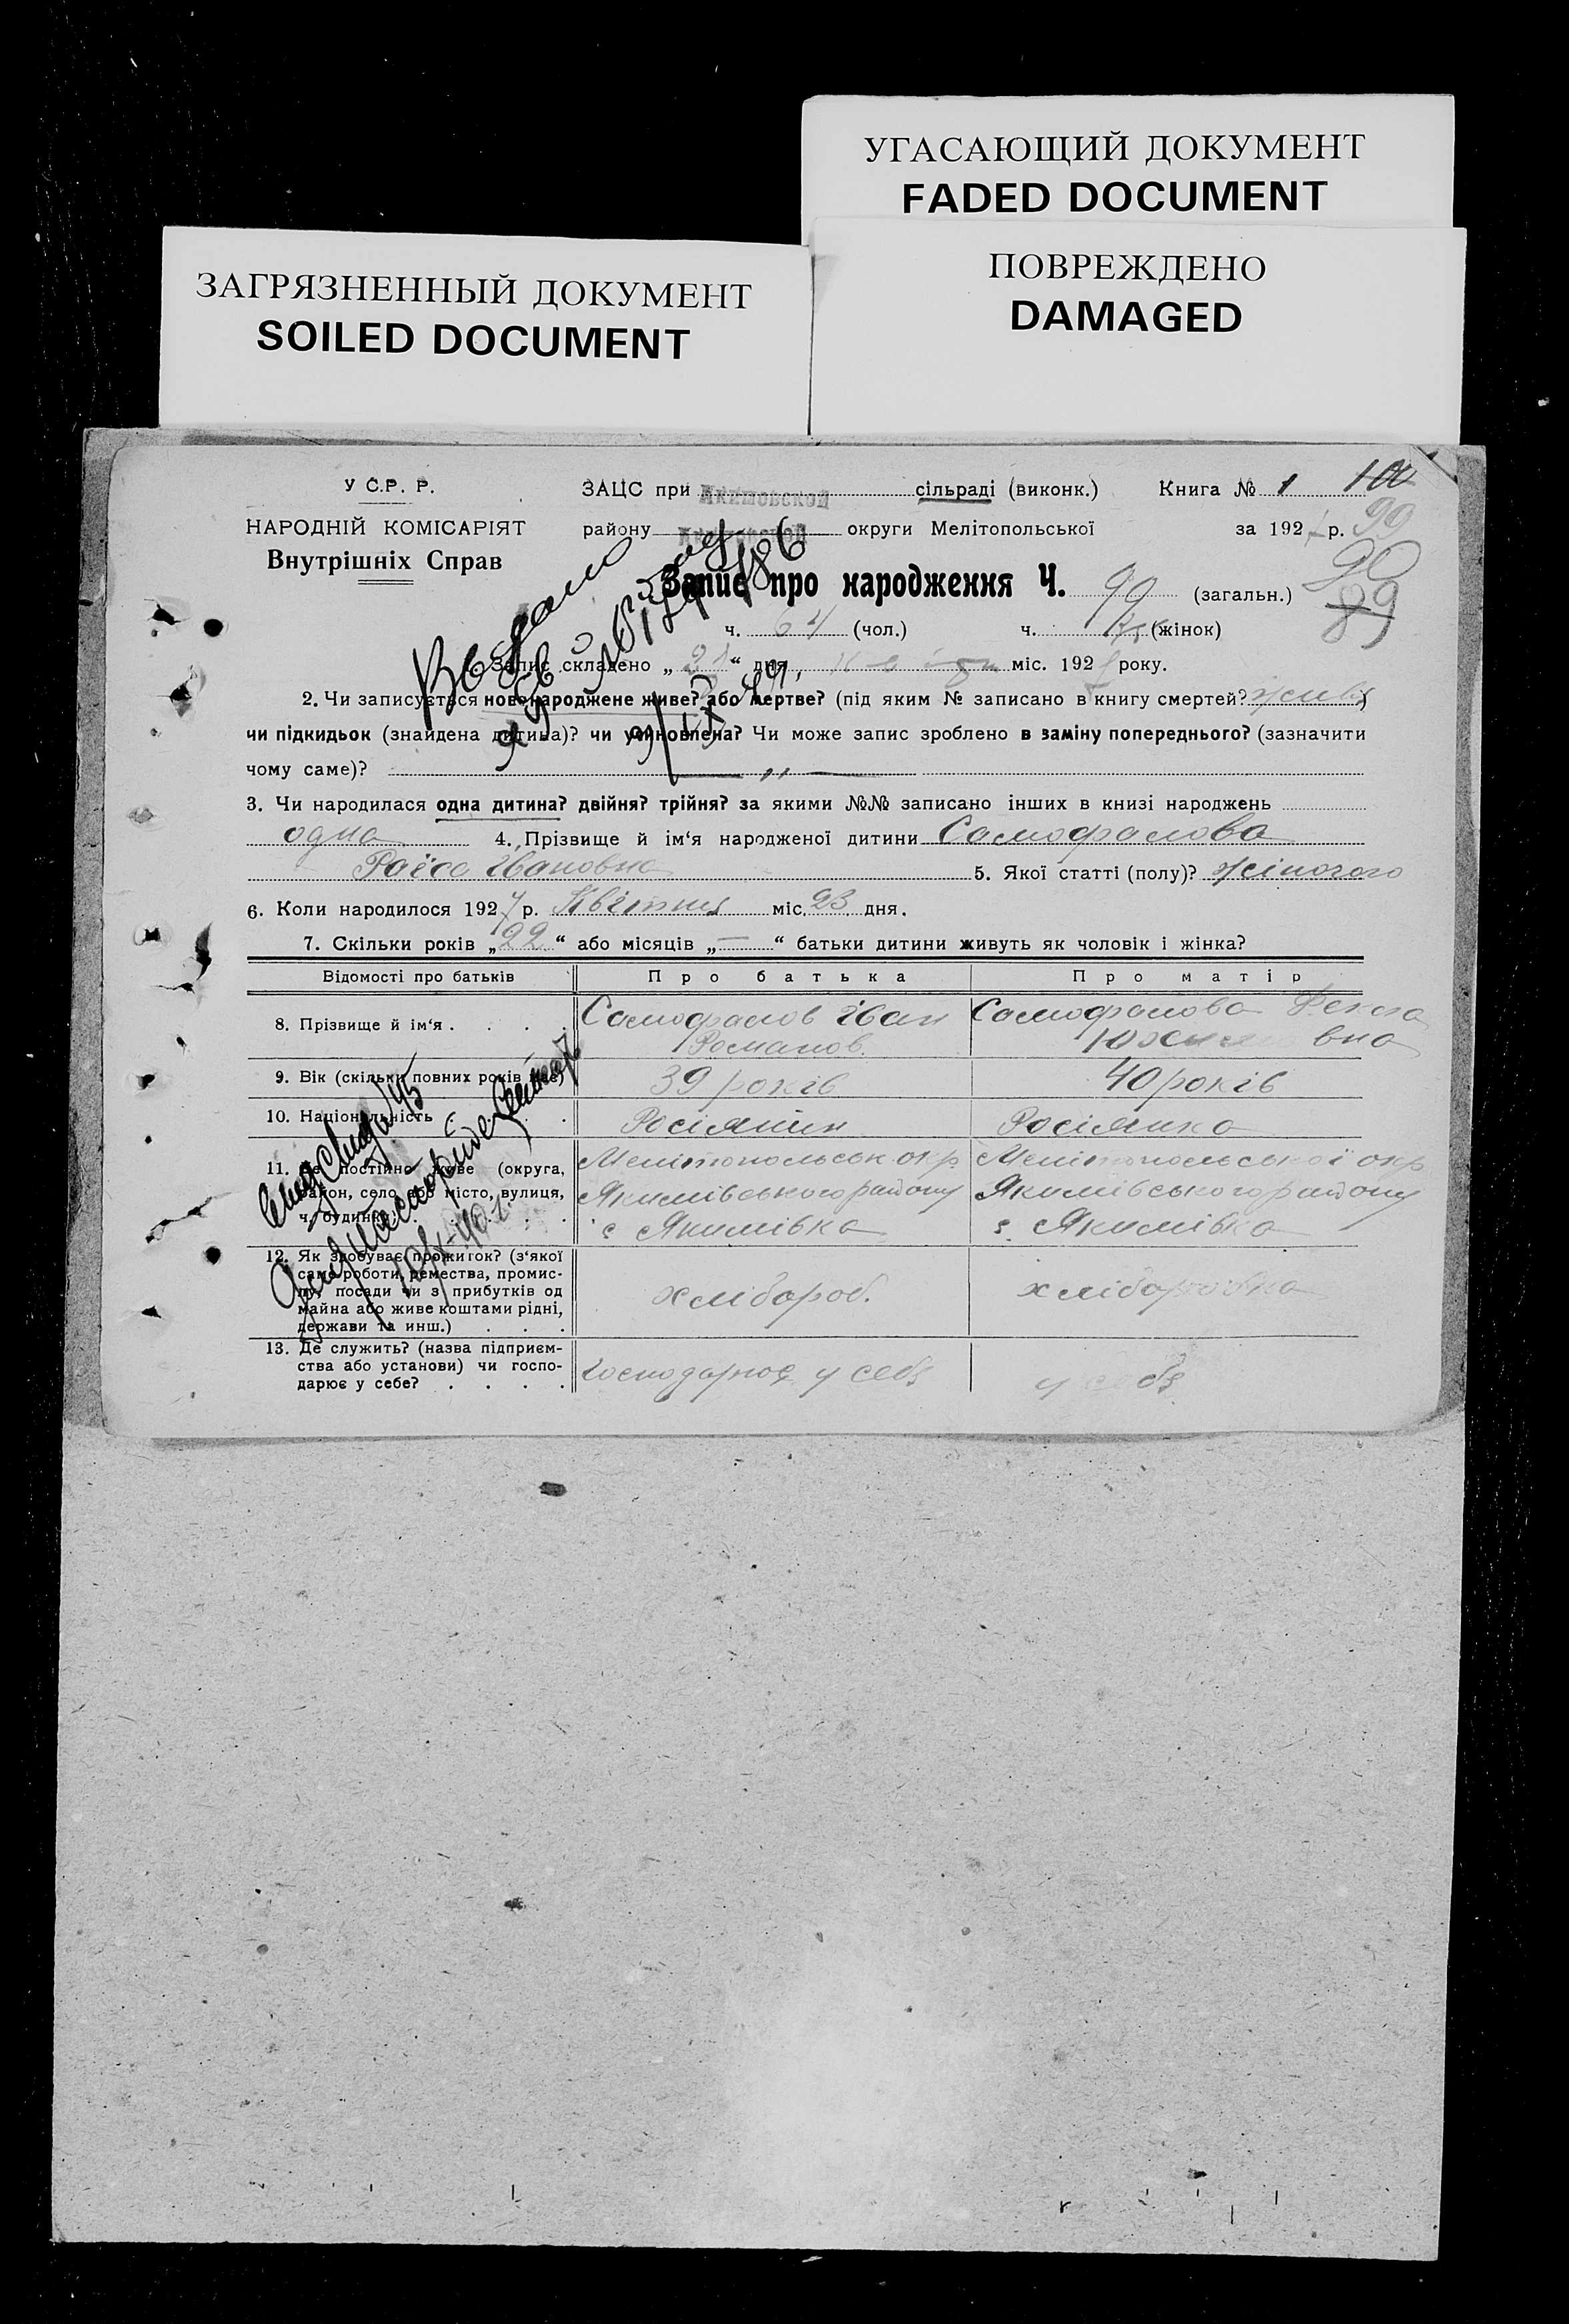 УГАСАЮЩИЙ ДОКУМЕНТ
FADED DOCUMENT
ЗАГРЯЗНЕННЫЙ ДОКУМЕНТ
SOILED DOCUMENT
ПОВРЕЖДЕНО
DAMAGED
У С.Р. Р.
НАРОДНІЙ КОМІСАРІЯТ
Внутрішніх Справ
ЗАЦС при Акимовской сільраді (виконк.) Книга № 1 100
району округи Мелітопольської за 192 р. 99
90
89
Запис про народження Ч. 99 (загальн.)
ч. 64 (чол.) ч. (жінок)
Запис складено „ “ дня, міс. 192 року.
2. Чи записується новонароджене живе? або мертве? (під яким № записано в книгу смертей?
чи підкидьок (знайдена дитина)? чи усиновлена? Чи може запис зроблено в заміну попереднього? (зазначити
чому саме)? „
3. Чи народилася одна дитина? двійня? трійня? за якими №№ записано інших в книзі народжень
одна 4. Прізвище й ім‘я народженої дитини Самофалова
Раїса Івановна 5. Якої статті (полу)? жіночого
6. Коли народилося 1927 р. Квітня міс. 23 дня.
7. Скільки років „22“ або місяців „—“ батьки дитини живуть як чоловік і жінка?
Відомості про батьків Про батька Про матір
8. Прізвище й ім‘я . . . . Самофалов Іван Романов. Самофалова вна
9. Вік (скільки повних років має) 39 років 40 років
10. Національність . . . . Росіянин Росіянка
11. Де постійно живе (округа, Мелітопольськ окр Мелітопольської окр
район, село або місто, вулиця, Якимівського району Якимівського району
ч. будинку) . . . . с Якимівка с. Якимівка
12. Як здобуває прожиток? (з‘якої
саме роботи, ремества, промис-
лу, посади чи з прибутків од хлібороб. хліборобка
майна або живе коштами рідні,
держави та инш.) . . .
13. Де служить? (назва підприєм-
ства або установи) чи госпо- Господарює у себе у себе
дарює у себе? . . . .